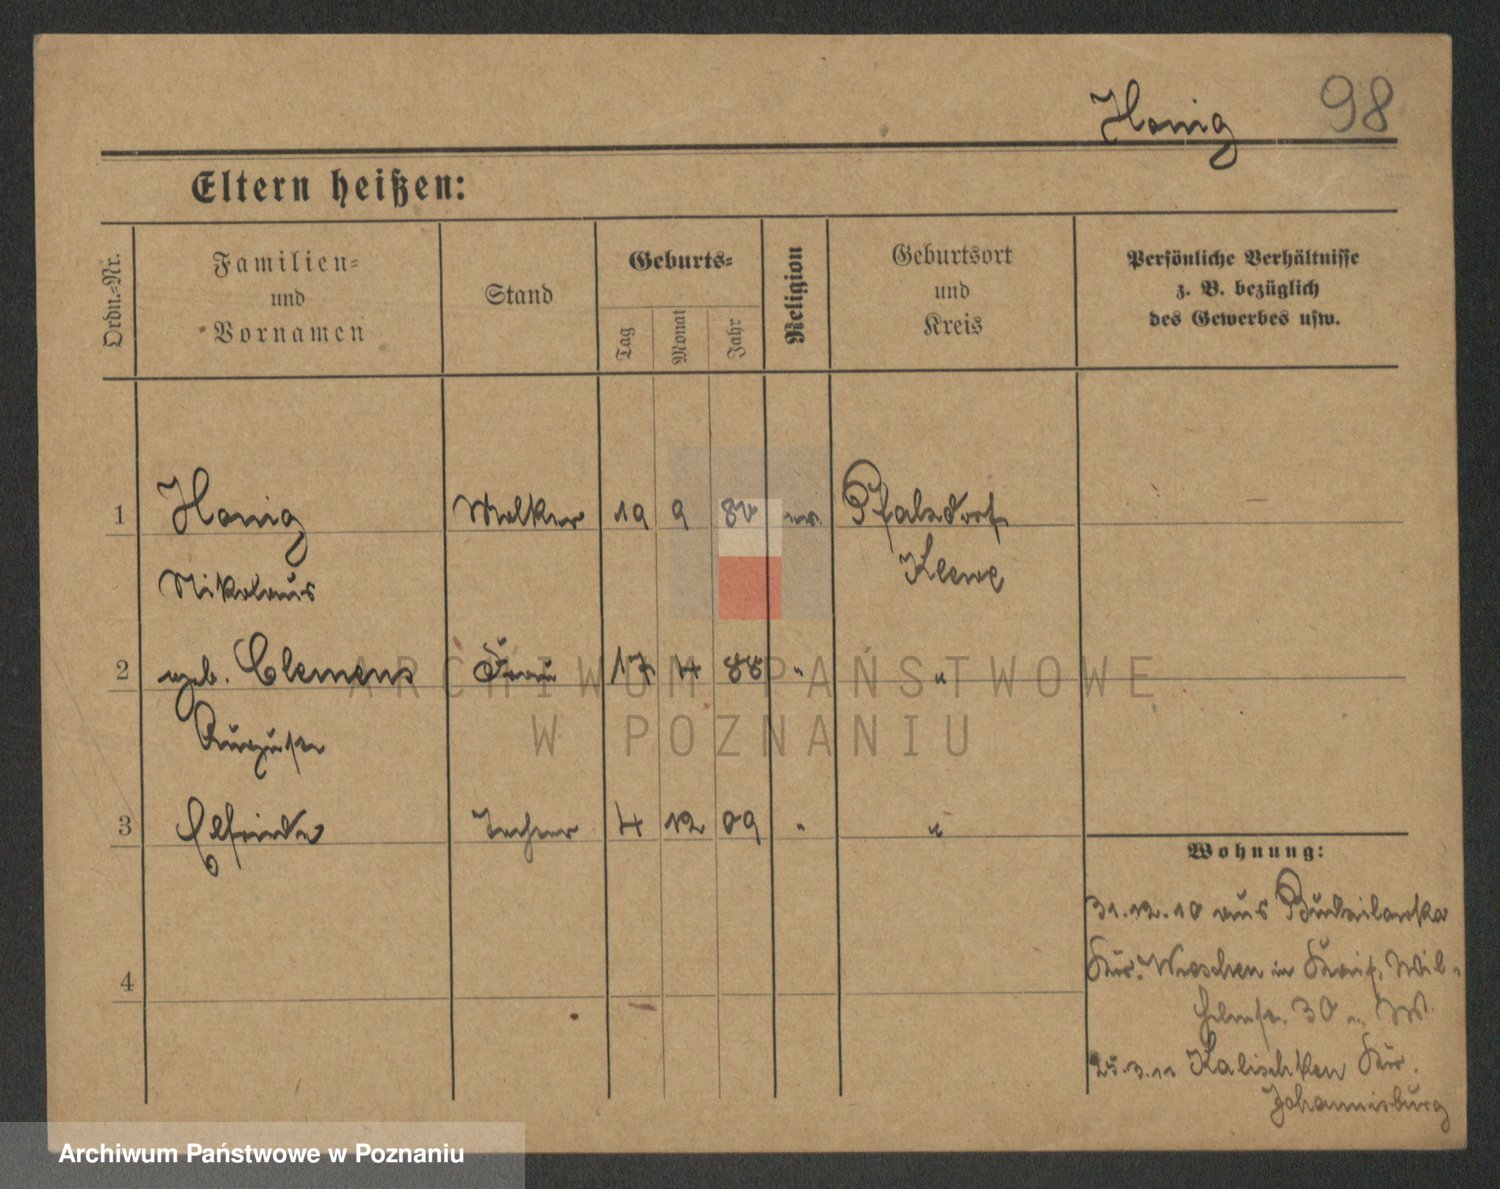 Honig 98
Eltern heißen:
Ordn.-Nr.
Familien-
und
Vornamen
Stand
Geburts-
Tag
Monat
Jahr
Religion
Geburtsort
und
Kreis
Persönliche Verhältnisse
z. B. bezüglich
des Gewerbes usw.
1 Honig Melker 19 9 80 ev. Pfalzdorf
Nikolaus Kleve
2 geb. Clemens Frau 17 4 88 " "
Auguste
3 Elfriede Tochter 4 12 09 " "
4
Wohnung:
31.12.10 aus
Kr. Wreschen in Wil-
helmstr. 30
25.3.11 Kalischken Kr.
Johannisburg
ARCHIWUM PAŃSTWOWE
W POZNANIU
Archiwum Państwowe w Poznaniu